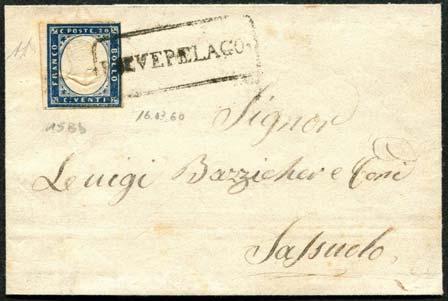 11
C. POSTE. 20
FRANCO
BOLLO
C. VENTI
PIEVEPELAGO
15Bb
16.03.60
Signor
Luigi Bazzicher e Coni
Sassuolo.